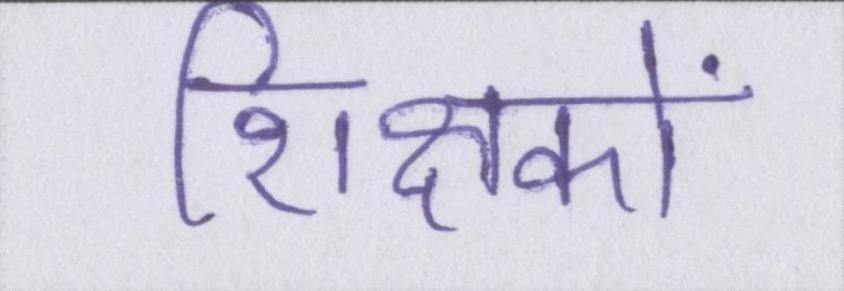 शिक्षकों